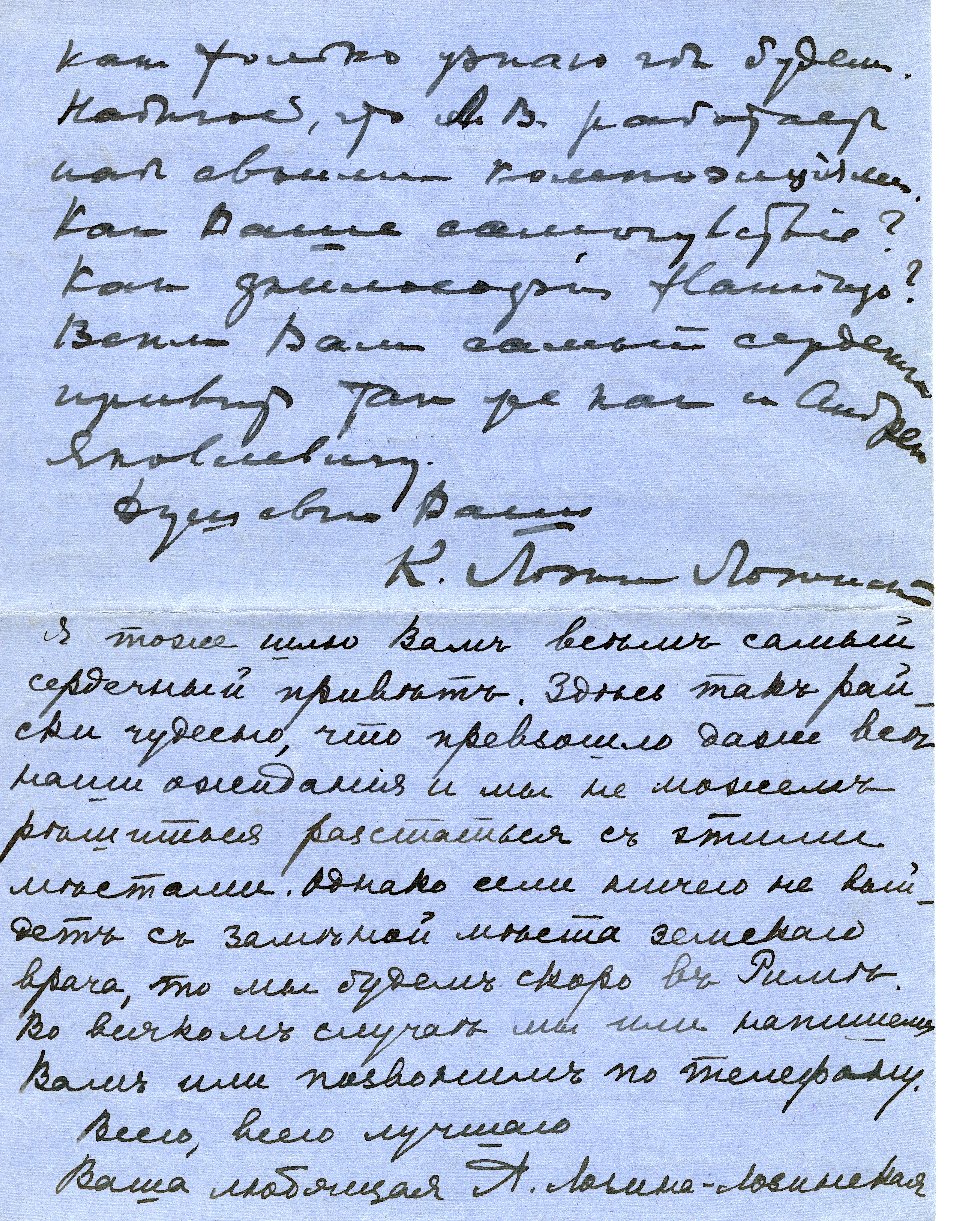 как только узнаю где будем.
Надеюсь, что А. В. работает
над своими композициями.
Как Ваше самочувствіе?
Как философія
Всем Вам самый сердечный
привет так же как и Андрею
Яковлевичу.
Душевно Ваш
К. Лозина Лозинский
Я тоже шлю Вамъ всѣмъ самый
сердечный привѣтъ. Здѣсь такъ рай
ски чудесно, что превзошло даже всѣ
наши ожиданія и мы не можемъ
рѣшиться разстаться съ этими
мѣстами. Однако если ничего не вый-
детъ съ замѣной мѣста земскаго
врача, то мы будемъ скоро въ Римѣ.
Во всякомъ случаѣ мы или напишемъ
Вамъ или позвонимъ по телефону.
Всего, всего лучшаго
Ваша любящая А. Лозина-Лозинская